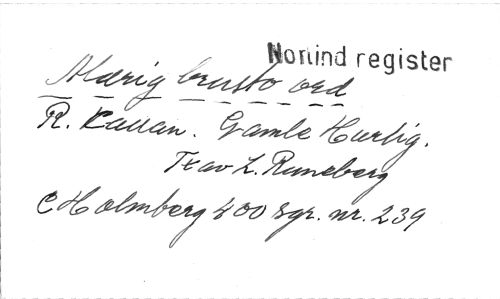 Norrind register
Mærig brusto ord
R. Kallan. Gamle Hurtig.
Tt av L. Runeberg
C Holmberg 400 sgr. nr. 239